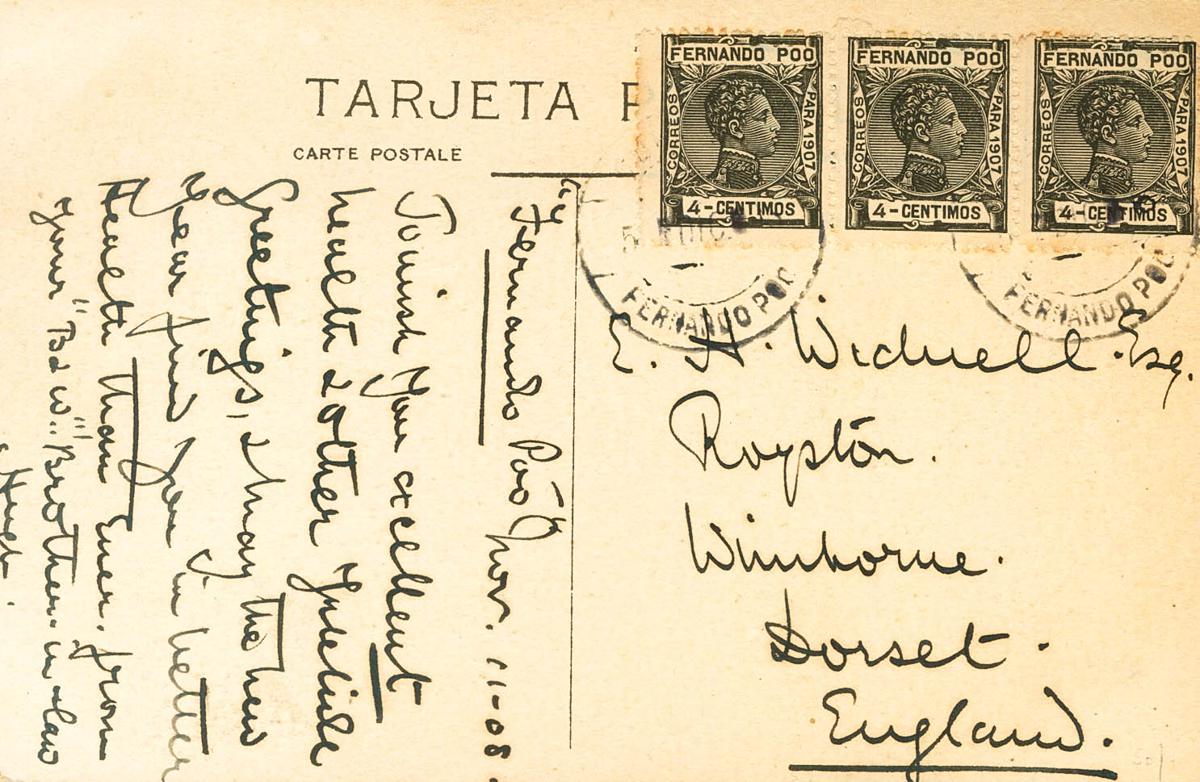 TARJETA P
CARTE POSTALE
FERNANDO POO
CORREOS
PARA 1907
4-CENTIMOS
FERNANDO POO
CORREOS
PARA 1907
4-CENTIMOS
FERNANDO POO
CORREOS
PARA 1907
4-CENTIMOS
FERNANDO POO
FERNANDO POO
"Fernando Poo" Nov. 11-08.
To wish you excellent
health & other Yuletide
Greetings, & may the new
Year find you in better
Health than Ever. from
your "B & W" Brother-in-law
Hugh.
E. H. Esq.
Royston.
Wimborne.
Dorset.
England.